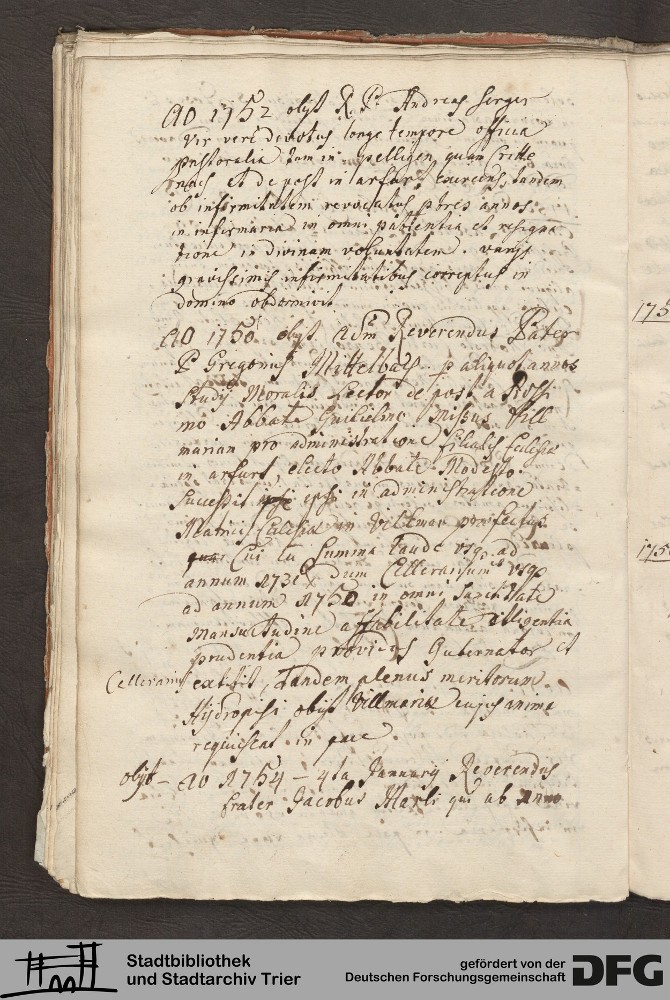 Ao 1752 obijt R. P. Andreas Serger
Vir vere devotus longe tempore officia
pastoralia tam in pelligen, quam Critte
nach et de post in arfurt exercens, tandem
ob infirmitatem revocatus p tres annos
in infirmaria in omni patientia et resigna
tione in divinam voluntatem. varijs
gravissimis infirmitatibus correptus in
domino obdormivit.
Ao 1750 obijt adm Reverendus Pater
P Gregorius Mittelbach p aliquot annos
Studij Moralis Lector de post a Rssi
mo Abbate Guilielmo missus Vill
mariam pro administratione filialis Ecclesiæ
in arfurt, electo Abbate Modesto
successit ipsi in administratione
Matricis Ecclesiæ in Villmar profectus
Cui cu summa laude usq ad
annum 173 dum Cellerarium usq
ad annum 1750 in omni sanctitate
mansuetudine affabilitate diligentia
prudentia providus Gubernator et
Cellerarius extitit, tandem plenus meritorum
Hydropisi obijt Villmariæ cujus anima
requiescat in pace.
obijt - ao 1754 - 4ta Januarij Reverendus
frater Jacobus Marli qui ab anno
175
175
Stadtbibliothek
und Stadtarchiv Trier
gefördert von der
Deutschen Forschungsgemeinschaft
DFG